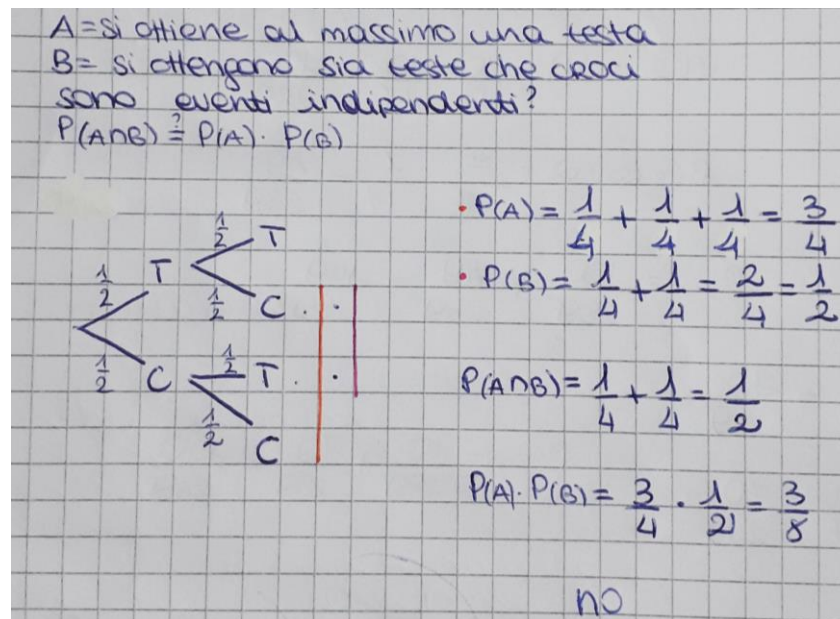 A = si ottiene al massimo una testa
B = si ottengono sia teste che croci
sono eventi indipendenti?
P(A∩B) ≟ P(A) · P(B)
1/2 T
1/2 T
1/2 C
1/2 C
1/2 T
1/2 C
• P(A) = 1/4 + 1/4 + 1/4 = 3/4
• P(B) = 1/4 + 1/4 = 2/4 = 1/2
P(A∩B) = 1/4 + 1/4 = 1/2
P(A) · P(B) = 3/4 · 1/2 = 3/8
no